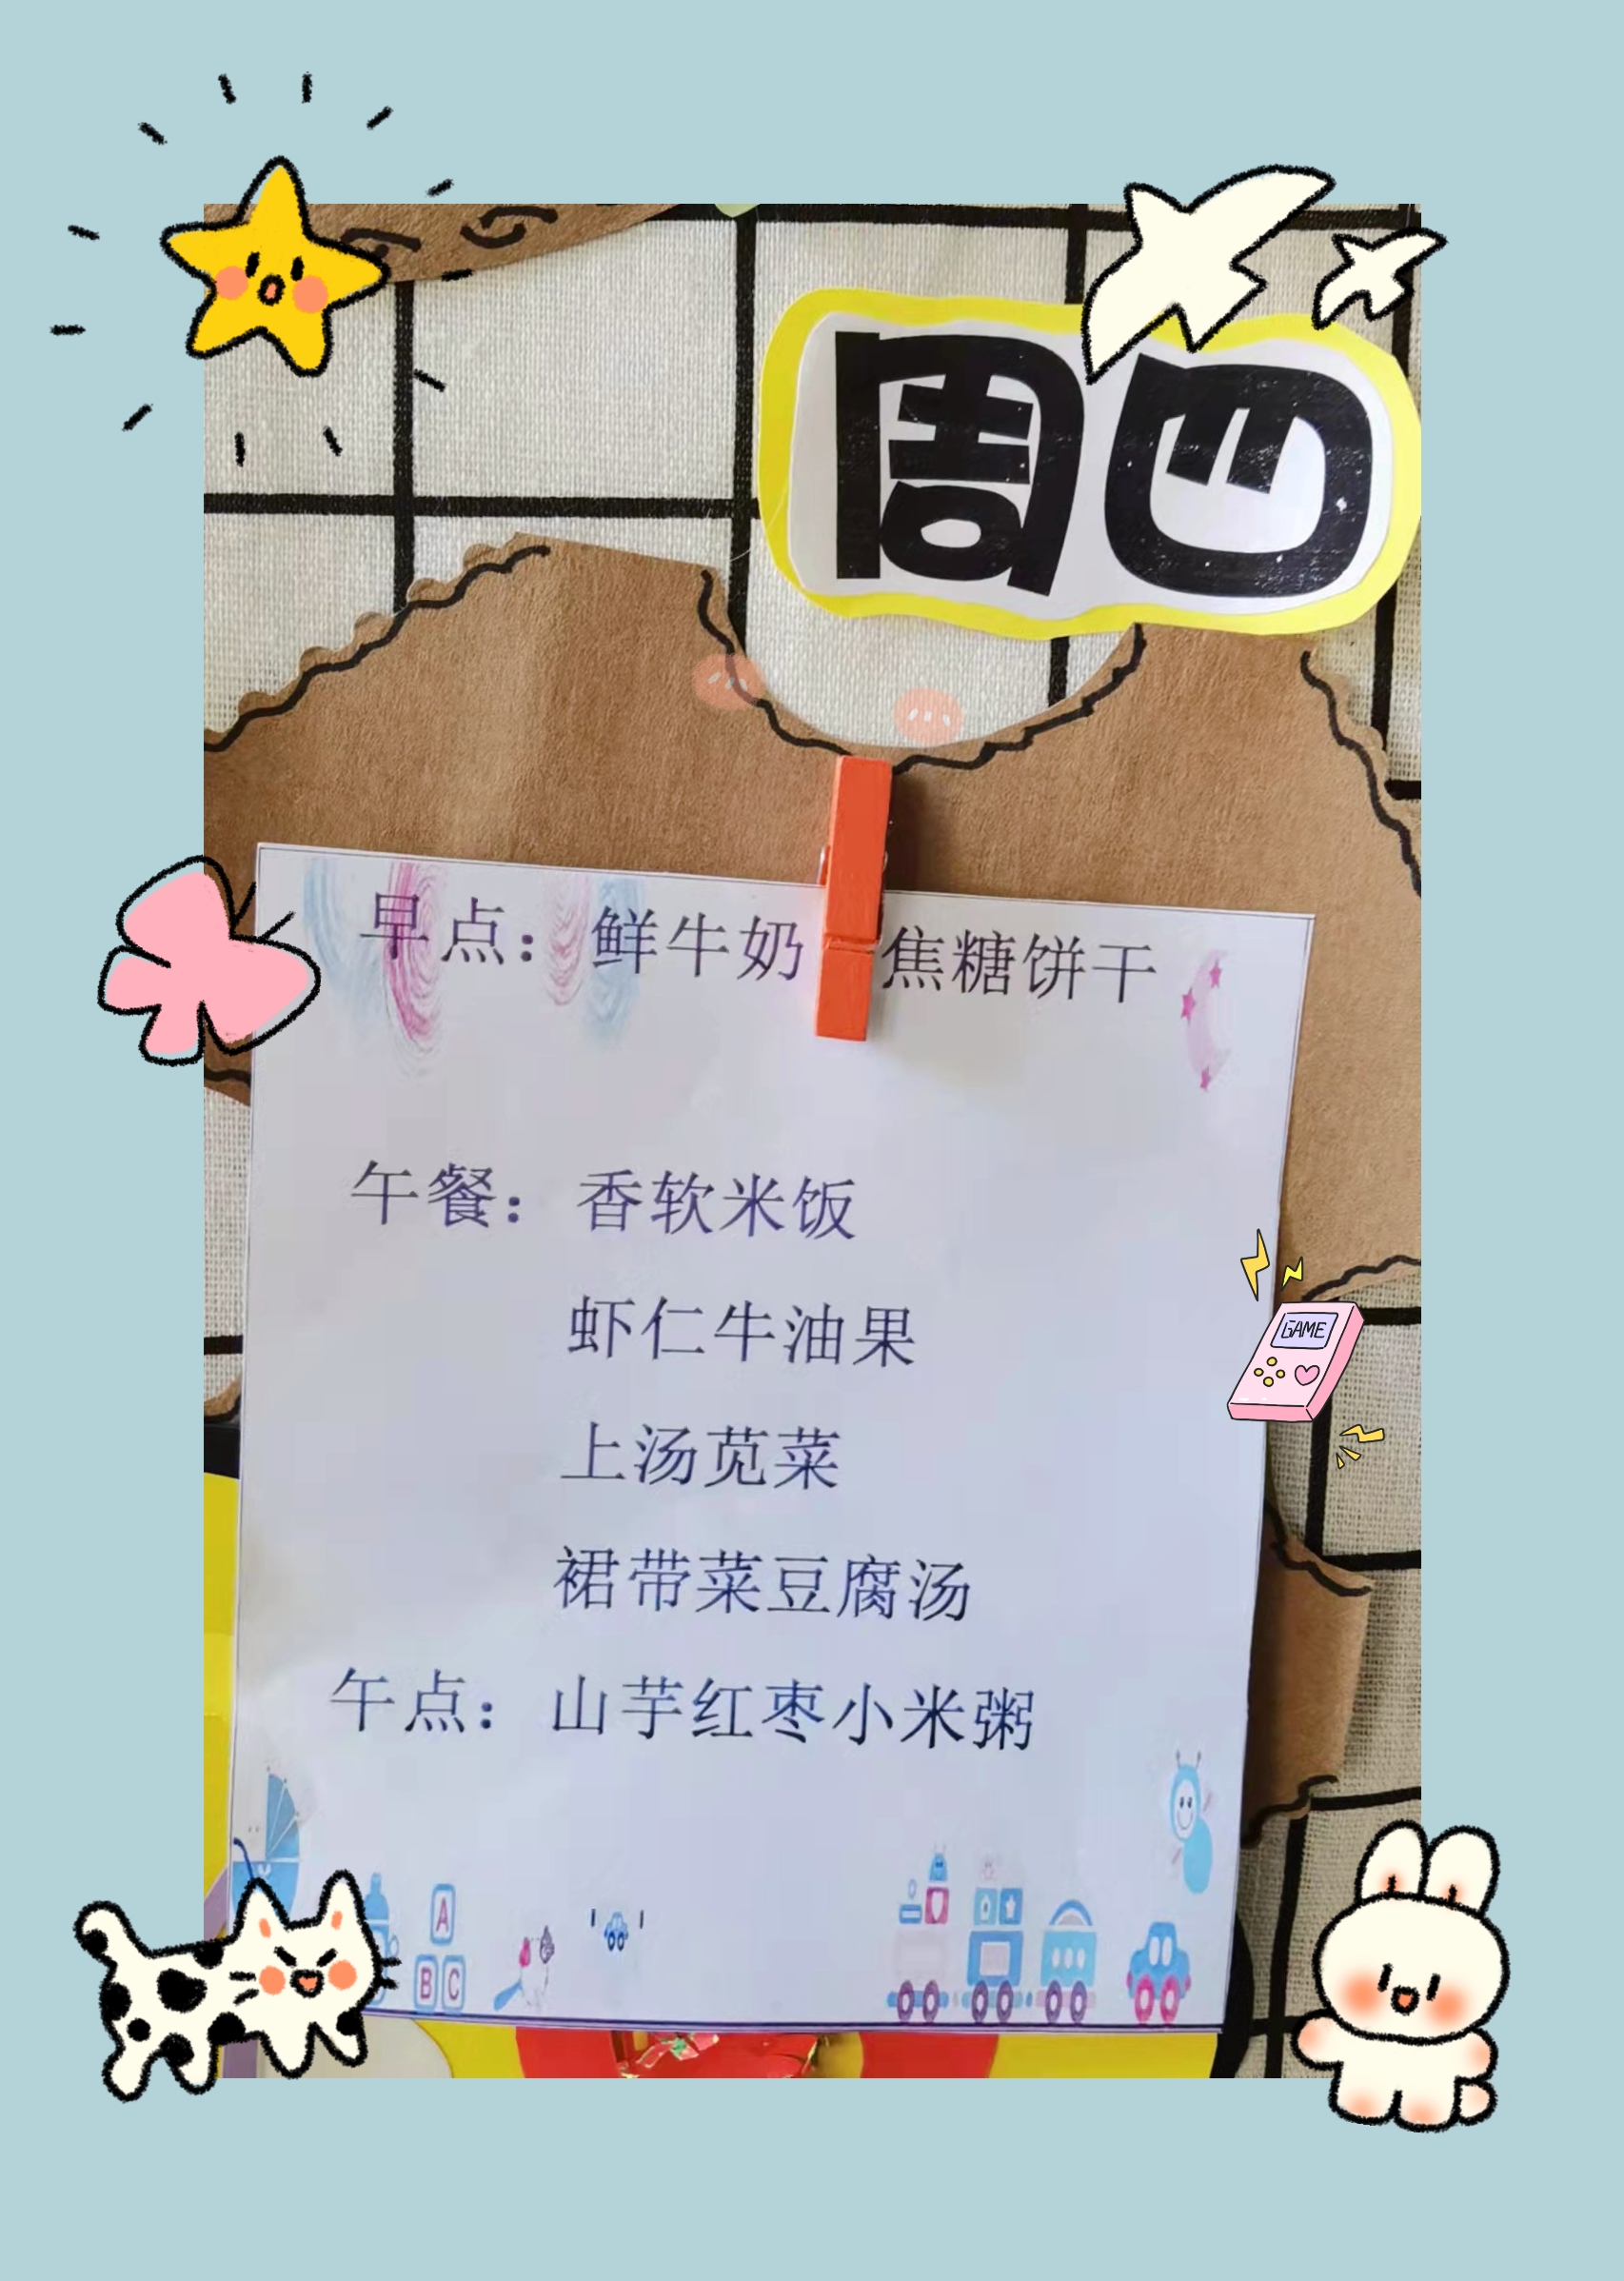 周四
早点：鲜牛奶 焦糖饼干
午餐：香软米饭
虾仁牛油果
上汤苋菜
裙带菜豆腐汤
午点：山芋红枣小米粥
GAME
A
B C